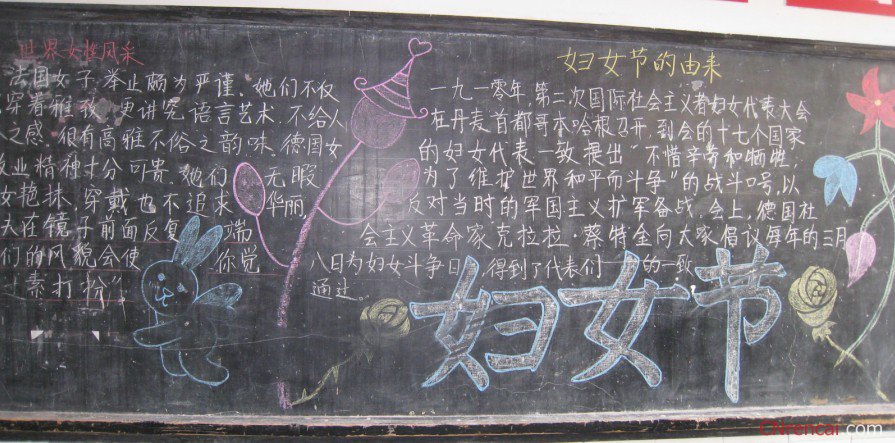 世界女性风采
法国女子举止颇为严谨。她们不仅
穿着雅致,更讲究语言艺术,不给人
之感。很有高雅不俗之韵味。德国女
业精神十分可贵。她们 无暇
女艳抹,穿戴也不追求 华丽,
天在镜子前面反复 端
们的风貌会使 你觉
素打粉"。
妇女节的由来
一九一零年,第二次国际社会主义者妇女代表大会
在丹麦首都哥本哈根召开,到会的十七个国家
的妇女代表一致提出"不惜辛劳和牺牲,
为了维护世界和平而斗争"的战斗口号,以
反对当时的军国主义扩军备战。会上,德国社
会主义革命家克拉拉·蔡特金向大家倡议每年的三月
八日为妇女斗争日,得到了代表们 的一致
通过。
妇女节
CNrencai.com